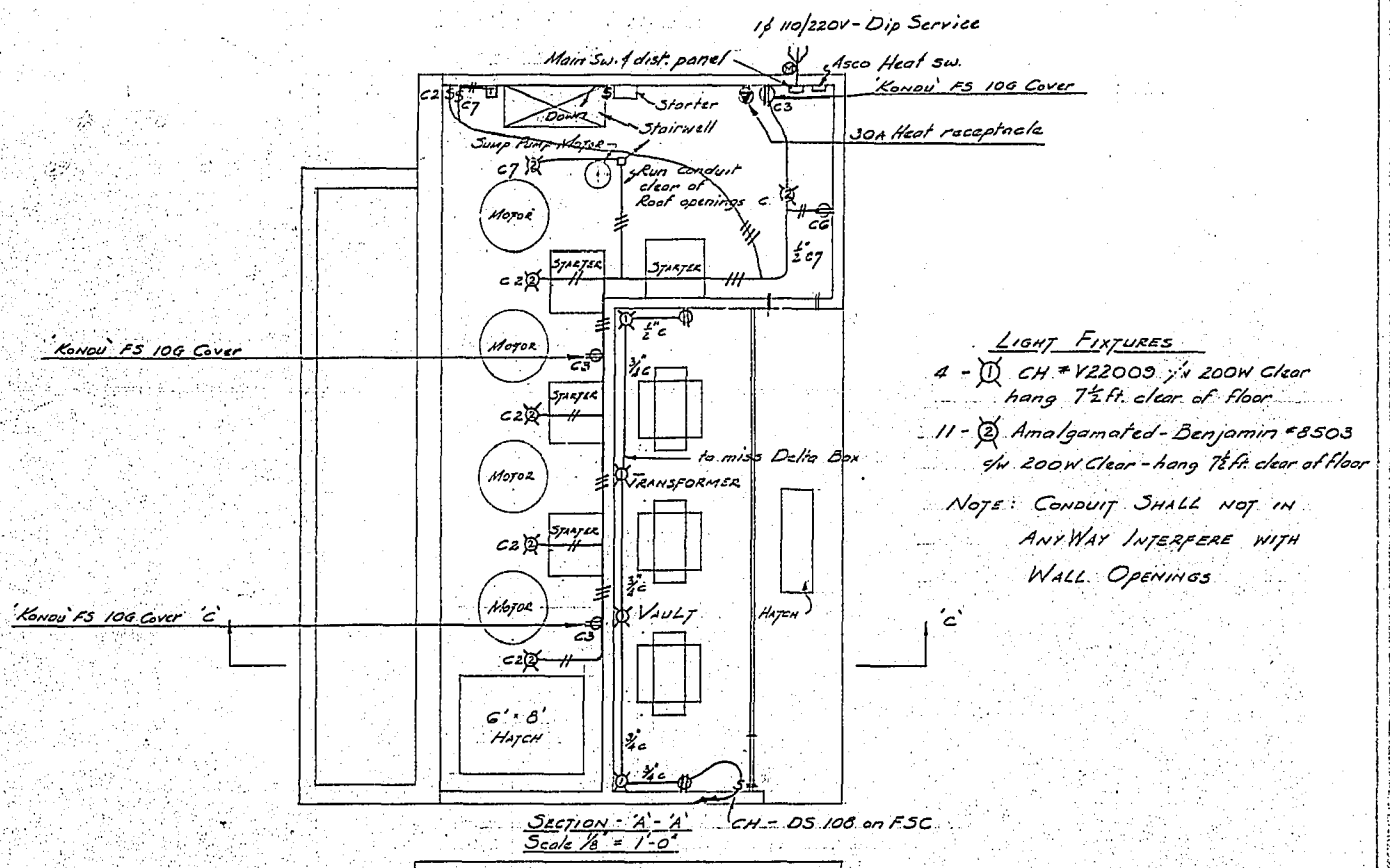 1ϕ 110/220V - Dip Service
Main Sw. & dist. panel
Asco Heat sw.
'Kondu' FS 10G Cover
C2 $ $
C7
Down
S
Starter
C3
Stairwell
30A Heat receptacle
Sump Pump Motor
C7 2
Run conduit
clear of
Roof openings
C
2
C6
MOTOR
½" C7
STARTER
STARTER
C2 2
1
½" C
'Kondu' FS 10G Cover
MOTOR
C3
¾" C
STARTER
C2 2
to miss Delta Box
MOTOR
1
TRANSFORMER
STARTER
C2 2
¾" C
MOTOR
'Kondu' FS 10G Cover
'C'
C3
1
VAULT
HATCH
'C'
C2 2
6' × 8'
HATCH
¾" C
1
¾" C
S
SECTION - 'A' - 'A'
Scale 1/8" = 1'-0"
CH - DS 108 on FSC
LIGHT FIXTURES
4 - 1 CH # V22009 c/w 200W Clear
hang 7½ ft. clear of floor
11 - 2 Amalgamated - Benjamin #8503
c/w 200W Clear - hang 7½ ft. clear of floor
NOTE: CONDUIT SHALL NOT IN
ANY WAY INTERFERE WITH
WALL OPENINGS